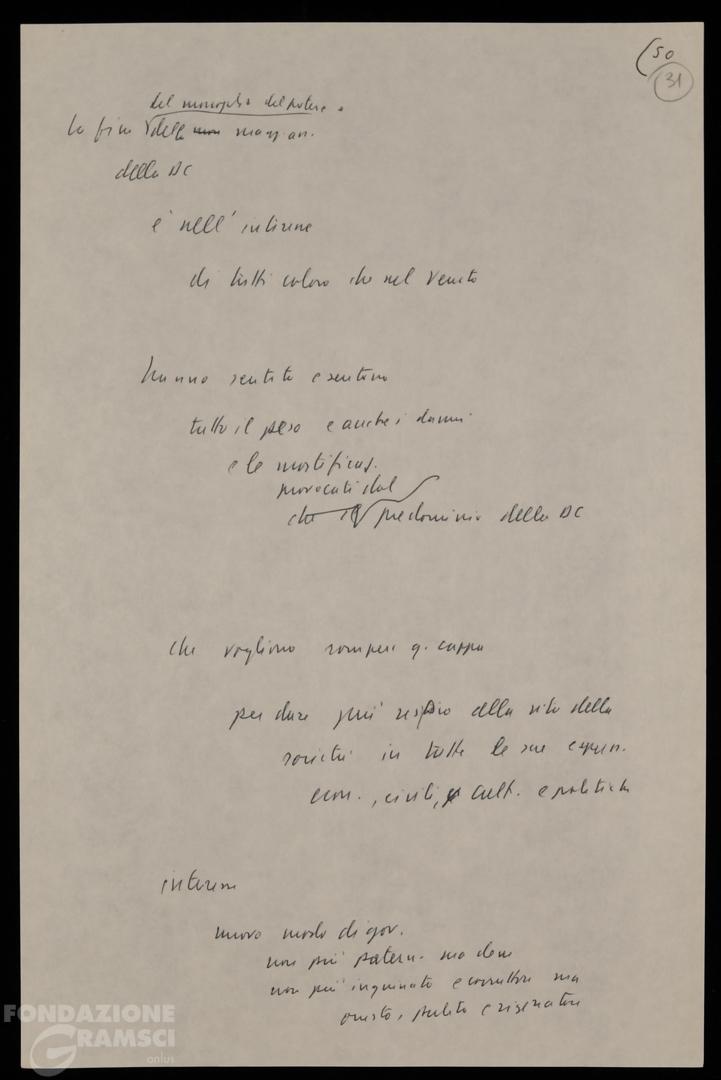 (50
31
del monopolio del potere e
la fine della maggioran.
della DC
è nell'interesse
di tutti coloro che nel Veneto
hanno sentito e sentono
tutto il peso e anche i danni
e le mortificaz.
provocati dal
che il predominio della DC
che vogliono rompere q. cappa
per dare più respiro alla vita della
società in tutte le sue espress.
econ., civili, cult. e politiche
interesse
nuovo modo di gov.
non più patern. ma dem
non più inquinato e corruttore ma
onesto, pulito e risanatore
FONDAZIONE
GRAMSCI
onlus